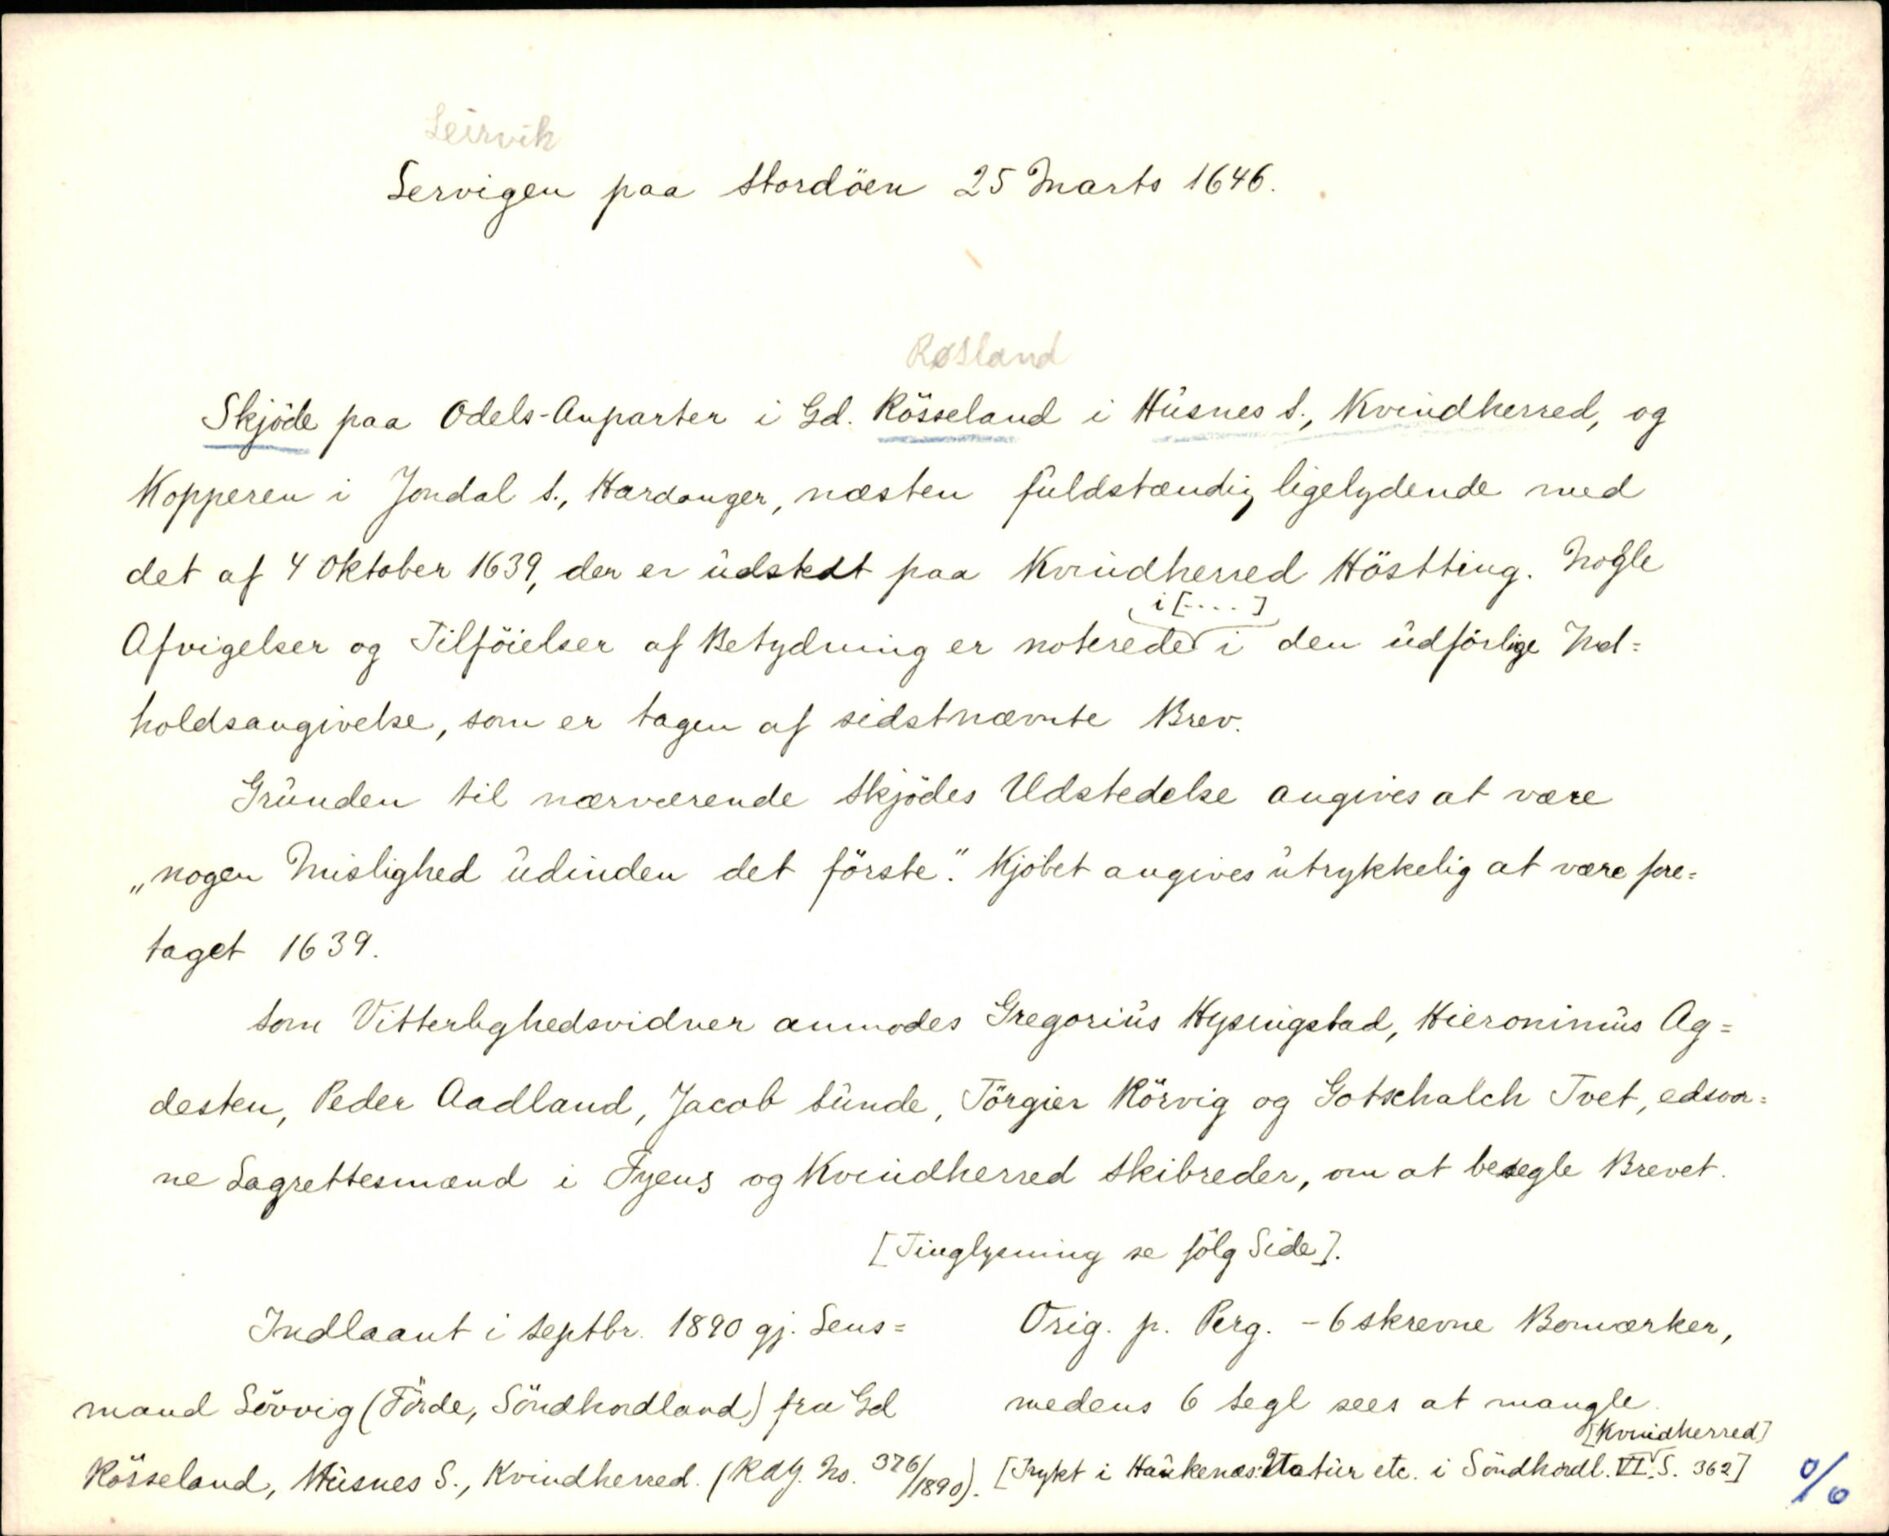 Leirvik
Lervigen paa Stordöen 25 Marts 1646.
Røsland
Skjöde paa Odels-Anparter i Gd. Rösseland i Húsnes S., Kvindherred, og
Kopperen i Jondal S., Hardanger, næsten fuldstændig ligelydende med
det af 4 Oktober 1639, der er udstedt paa Kvindherred Höstting. Nogle
i [....]
Afvigelser og Tilföielser af Betydning er noterede i den udförlige Ind=
holdsangivelse, som er tagen af sidstnævnte Brev.
Grunden til nærværende Skjödes Udstedelse angives at være
„nogen Mislighed udinden det förste." Kjöbet angives utrykkelig at være fore=
taget 1639.
Som Vitterlighedsvidner anmodes Gregorius Hysingstad, Hieronimus Ag=
desten, Peder Aadland, Jacob Sunde, Törgier Rörvig og Gotschalch Tvet, edsvor=
ne Lagrettesmænd i Fyens og Kvindherred Skibreder, om at besegle Brevet.
[Tinglysning se fölg Side].
Indlaant i Septbr. 1890 gj. Lens=
mand Lövvig (Förde, Söndhordland) fra Gd
Rösseland, Húsnes S., Kvindherred. (RAJ. No. 376/1890).
Orig. p. Perg. - 6 skrevne Bomærker,
medens 6 Segl sees at mangle.
[Kvindherred]
[Trykt i Haukenæs: Natur etc. i Söndhordl. VI. S. 362]
%